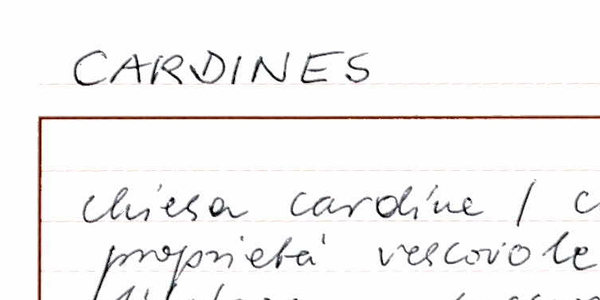 CARDINES
chiesa cardine /
proprietà vescovole